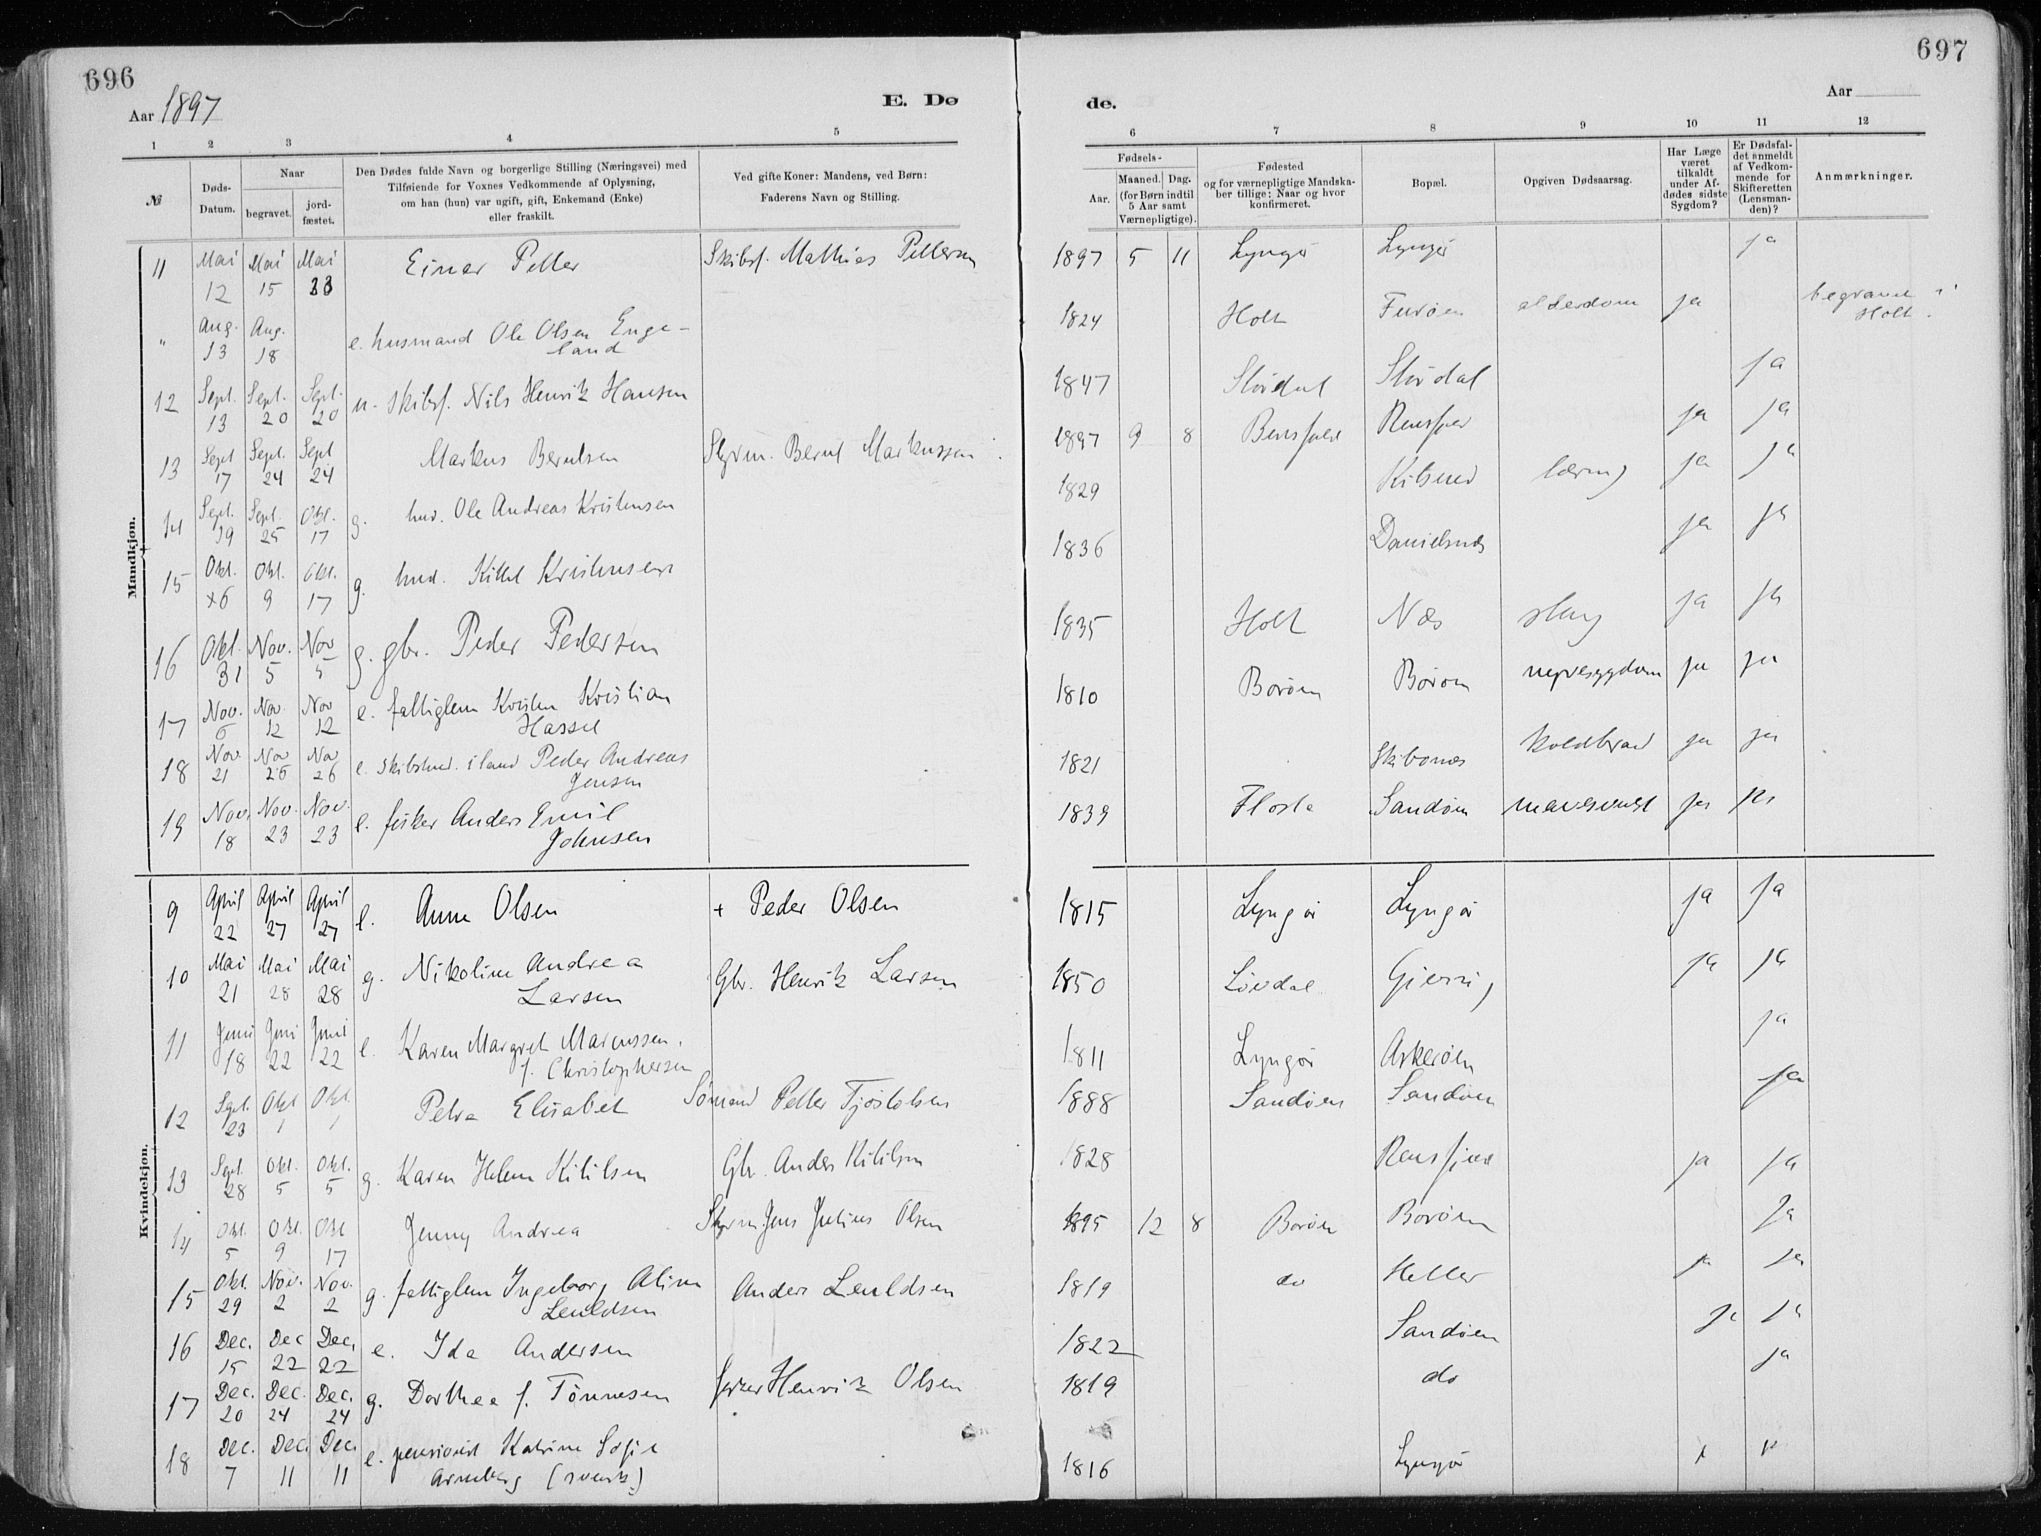 696
Aar 1897
E. Dø
1 2 3 4 5
№
Døds-Datum.
Naar
begravet.
jord-fæstet.
Den Dødes fulde Navn og borgerlige Stilling (Næringsvei) med
Tilføiende for Voxnes Vedkommende af Oplysning,
om han (hun) var ugift, gift, Enkemand (Enke)
eller fraskilt.
Ved gifte Koner: Mandens, ved Børn:
Faderens Navn og Stilling.
Mandkjøn.
11 Mai 12 Mai 15 Mai 23 Einar Petter Skibsf. Mathias Pettersen
" Aug. 13 Aug. 18 e. husmand Ole Olsen Enge-
land
12 Sept. 13 Sept. 20 Sept. 20 u. skibsf. Nils Henrik Hansen
13 Sept 17 Sept. 24 Sept 24 Markus Berntsen Styrm. Bernt Markussen
14 Sept. 19 Sept. 25 Okt. 17 g. hmd. Ole Andreas Kristensen
15 Okt. 6 Okt. 9 Okt. 17 g. hmd. Kittel Kristensen
16 Okt. 31 Nov. 5 Nov 5 g. gbr. Peder Pedersen
17 Nov. 6 Nov. 12 Nov 12 e. fattiglem Kristen Kristian
Hassel
18 Nov. 21 Nov 26 Nov 26 e. skibstmd. i land Peder Andreas
Jensen
19 Nov. 18 Nov. 23 Nov. 23 e. fisker Anders Emil
Johnsen
Kvindekjøn.
9 April 22 April 27 April 27 e. Anne Olsen + Peder Olsen
10 Mai 21 Mai 28 Mai 28 g. Nikoline Andrea
Larsen Gbr. Henrik Larsen
11 Juni 18 Juni 22 Juni 22 e. Karen Margret Marcussen,
f. Christophersen
12 Sept. 23 Okt 1 Okt 1 Petra Elisabet Sømand Petter Tjostolsen
13 Sept. 28 Okt. 5 Okt. 5 g. Karen Helene Kittilsen Gbr. Anders Kittilsen
14 Okt. 5 Okt. 9 Okt 17 Jenny Andrea Styrm Jens Julius Olsen
15 Okt. 29 Nov. 2 Nov. 2 g. fattiglem Ingeborg Aline
Leuldsen Anders Leuldsen
16 Dec. 15 Dec 22 Dec. 22 e. Ida Andersen
17 Dec. 20 Dec. 24 Dec. 24 g. Dorthea f. Tønnesen fisker Henrik Olsen
18 Dec. 7 Dec. 11 Dec. 11 e. pensionist Katrine Sofie
Arneberg (svensk)
697
de.
Aar
6 7 8 9 10 11 12
Fødsels-
Aar.
Maaned. Dag.
(for Børn indtil
5 Aar samt
Værnepligtige).
Fødested
og for værnepligtige Mandska-
ber tillige: Naar og hvor
konfirmeret.
Bopæl.
Opgiven Dødsaarsag.
Har Læge
været
tilkaldt
under Af-
dødes sidste
Sygdom?
Er Dødsfal-
det anmeldt
af Vedkom-
mende for
Skifteretten
(Lensman-
den)?
Anmærkninger.
1897 5 11 Lyngør Lyngør ja
1824 Holt Furøen alderdom ja begravet i
Holt.
1847 Støvdal Støvdal ja
1897 9 8 Rensfjeld Rensfjed ja ja
1829 Kilsund tæring ja ja
1836 Danielsnæs ja ja
1835 Holt Næs slag ja ja
1810 Borøen Borøen nyresygdom ja ja
1821 Skibsnæs Koldbrand ja ja
1839 Flosta Sandøen mavesvulst ja ja
1815 Lyngør Lyngør ja ja
1850 Løvdal Gjerring ja ja
1811 Lyngør Askerøen ja
1888 Sandøen Sandøen ja
1828 Rensfjed ja ja
1895 12 8 Borøen Borøen ja
1819 do Heller ja ja
1822 Sandøen ja ja
1819 do ja
1816 Lyngør